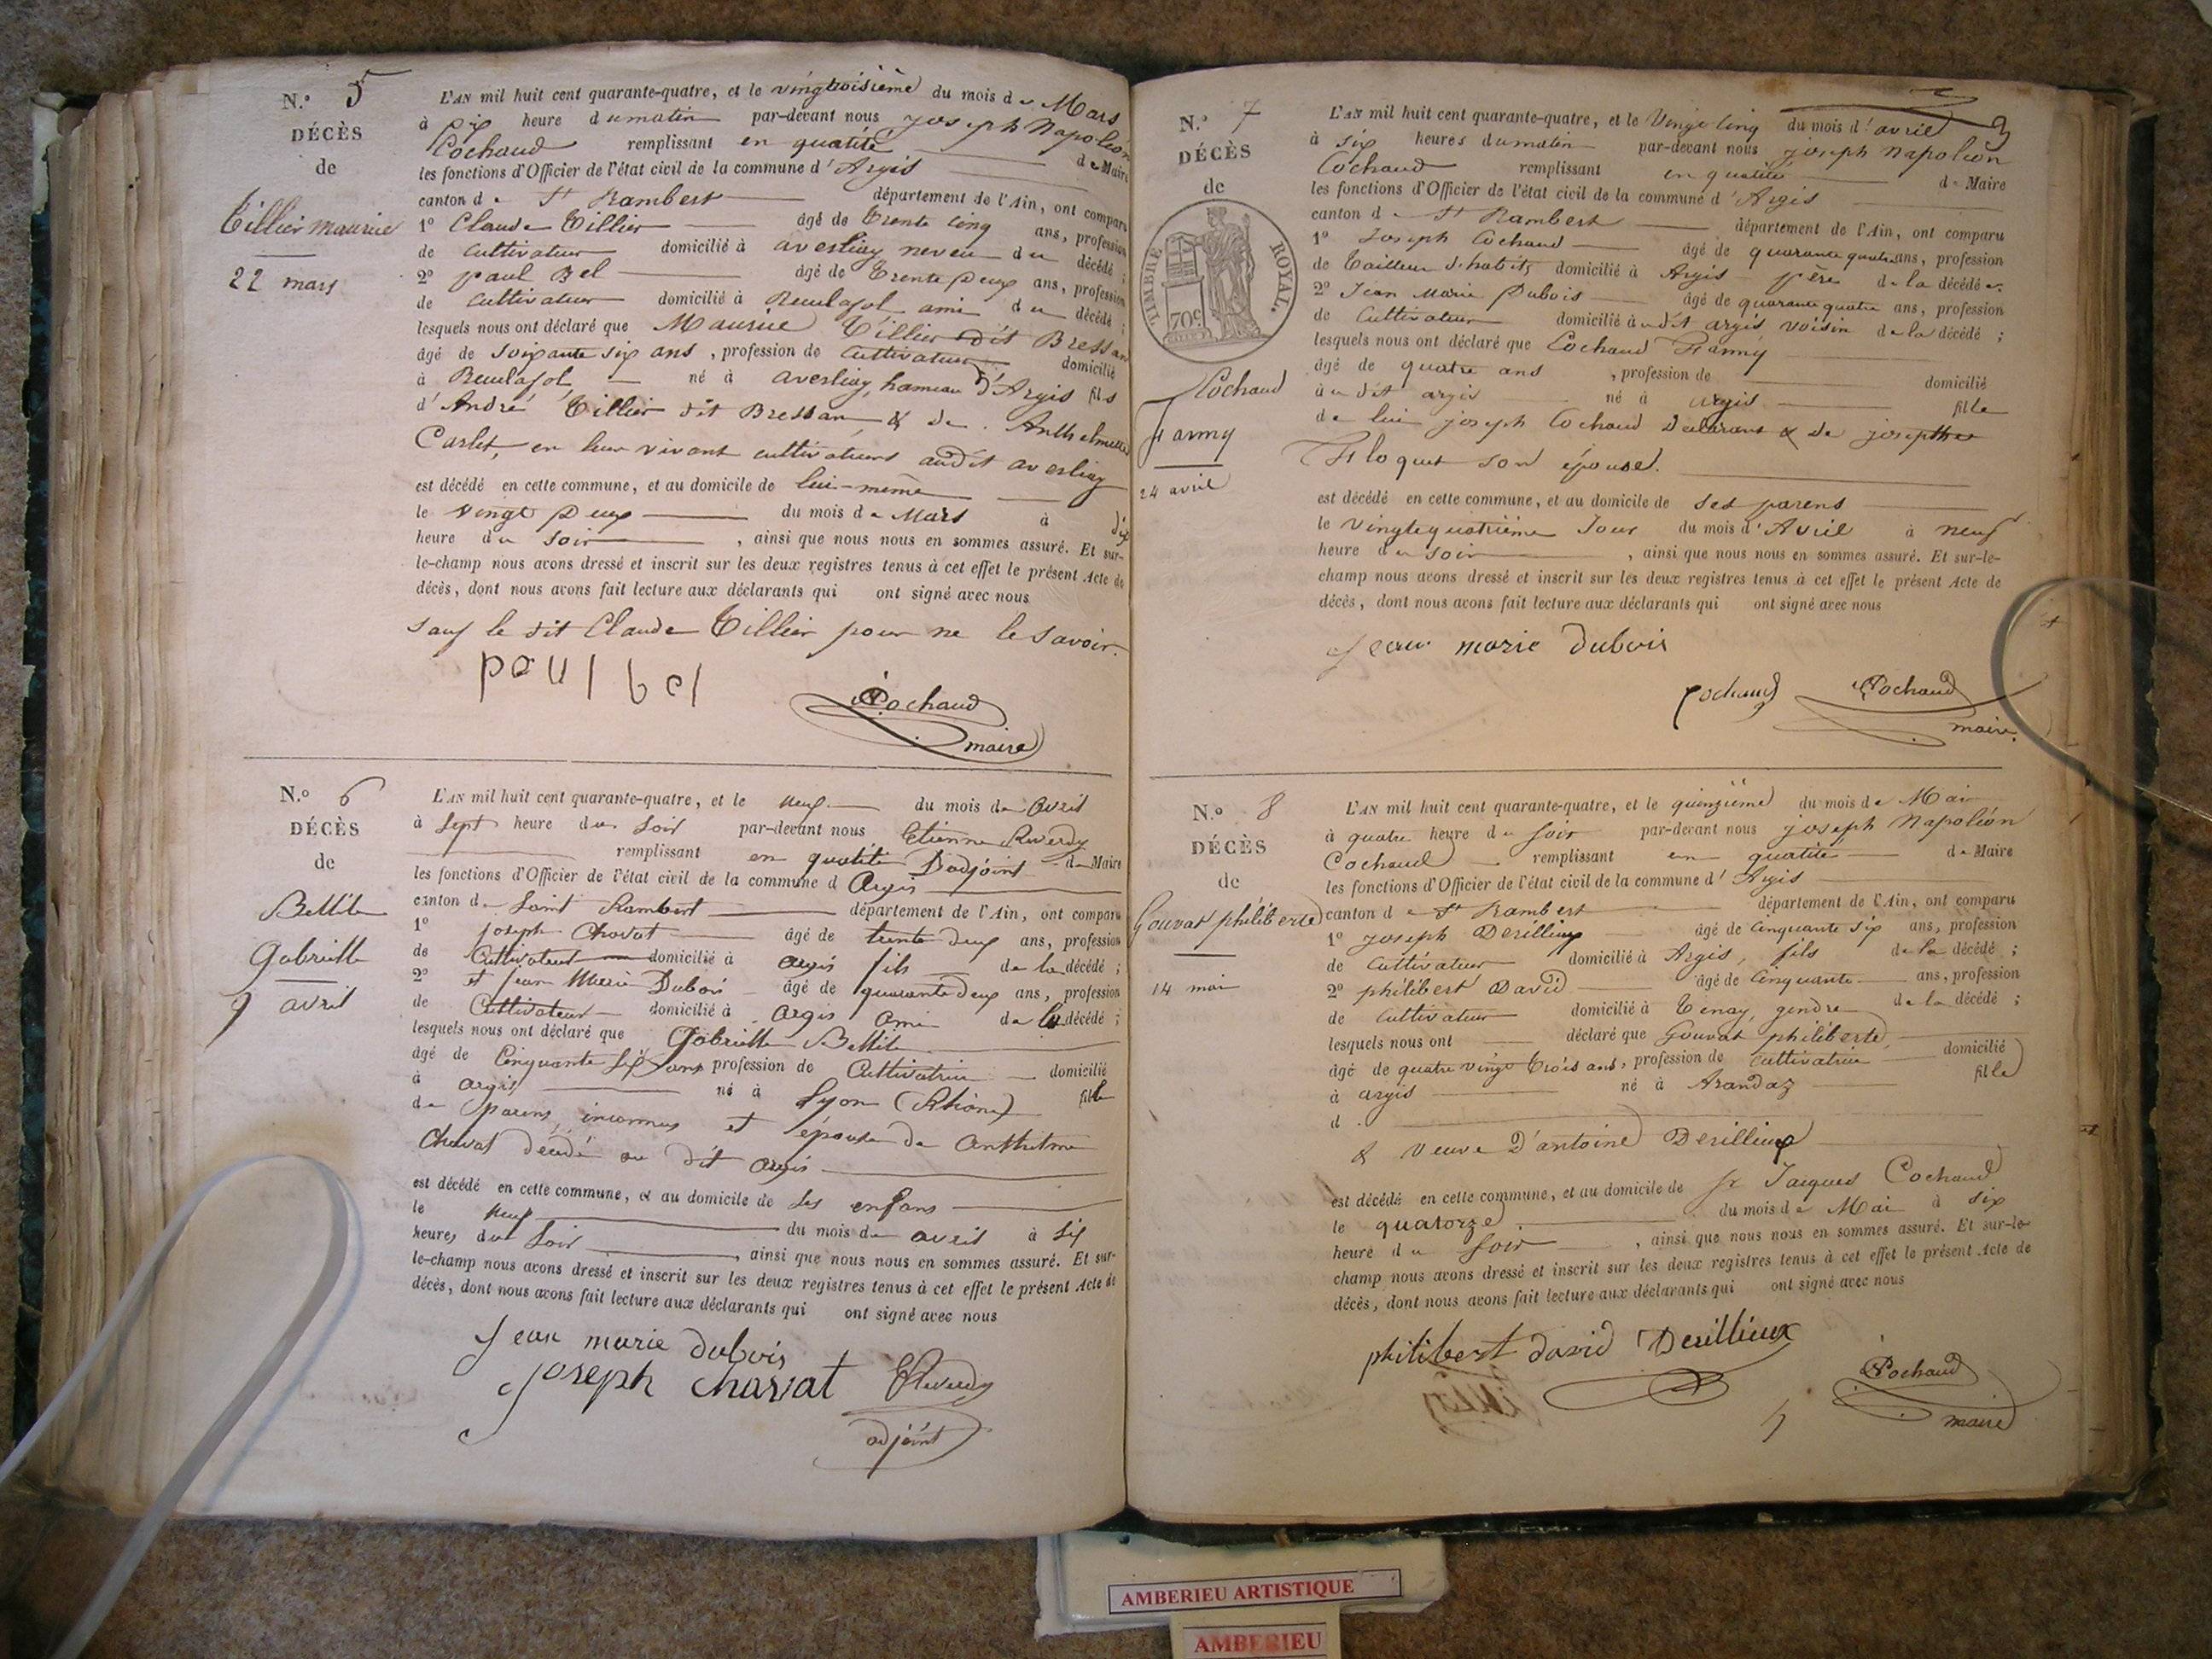 N.º 5
DÉCÈS
de
Tillier maurice
22 mars
L'AN mil huit cent quarante-quatre, et le vingtroisième du mois de Mars
à six heure du matin par-devant nous joseph Napoléon
Cochaud remplissant en qualité de Maire
les fonctions d'Officier de l'état civil de la commune d'Argis
canton de St Rambert département de l'Ain, ont comparu
1º Claude Tillier âgé de trente cinq ans, profession
de cultivateur domicilié à averliaz neveu du décédé ;
2º paul Bel âgé de trente deux ans, profession
de cultivateur domicilié à Reculafol ami du décédé ;
lesquels nous ont déclaré que Maurice Tillier dit Bressan
âgé de soixante six ans, profession de cultivateur domicilié
à Reculafol né à averliaz, hameau d'Argis fils
d'André Tillier dit Bressan, & de Anthelmette
Carlet, en leur vivant cultivateurs audit averliaz
est décédé en cette commune, et au domicile de lui-même
le vingt deux du mois de Mars à dix
heure du soir, ainsi que nous nous en sommes assuré. Et sur-
le-champ nous avons dressé et inscrit sur les deux registres tenus à cet effet le présent Acte de
décès, dont nous avons fait lecture aux déclarants qui ont signé avec nous
sauf le dit Claude Tillier pour ne le savoir.
paul bel
Cochaud
maire
N.º 6
DÉCÈS
de
Bellile
Gabrielle
9 avril
L'AN mil huit cent quarante-quatre, et le neuf du mois de avril
à sept heure du soir par-devant nous Etienne Reverdy
remplissant en qualité D'adjoint de Maire
les fonctions d'Officier de l'état civil de la commune d Argis
canton de Saint Rambert département de l'Ain, ont comparu
1º joseph Chavat âgé de trente deux ans, profession
de Cultivateur domicilié à argis fils de la décédé ;
2º et jean Marie Dubois âgé de quarante deux ans, profession
de Cultivateur domicilié à Argis ami de la décédé ;
lesquels nous ont déclaré que Gabrielle Bellile
âgé de Cinquante six ans profession de Cultivatrice domicilié
à argis né à Lyon (Rhône) fille
de parens inconnus et épouse de Anthelme
Chavat décédé au dit argis
est décédé en cette commune, et au domicile de ses enfans
le neuf du mois de avril à six
heures du soir, ainsi que nous nous en sommes assuré. Et sur-
le-champ nous avons dressé et inscrit sur les deux registres tenus à cet effet le présent Acte de
décès, dont nous avons fait lecture aux déclarants qui ont signé avec nous
jean marie dubois
joseph chavat EReverdy
adjoint
N.º 7
DÉCÈS
de
TIMBRE ROYAL.
70c
Cochaud
Fanny
24 avril
L'AN mil huit cent quarante-quatre, et le Vingt cinq du mois d'avril
à six heures du matin par-devant nous joseph Napoléon
Cochaud remplissant en qualité de Maire
les fonctions d'Officier de l'état civil de la commune d'Argis
canton de St Rambert département de l'Ain, ont comparu
1º Joseph Cochaud âgé de quarante quatre ans, profession
de Tailleur d'habits domicilié à Argis père de la décédée.
2º Jean Marie Dubois âgé de quarante quatre ans, profession
de Cultivateur domicilié au dit argis voisin de la décédé ;
lesquels nous ont déclaré que Cochaud Fanny
âgé de quatre ans, profession de domicilié
au dit argis né à argis fille
de lui joseph Cochaud Déclarant & de josephte
Floquet son épouse.
est décédé en cette commune, et au domicile de ses parens
le vingtquatrième Jour du mois d'Avril à neuf
heure du soir, ainsi que nous nous en sommes assuré. Et sur-le-
champ nous avons dressé et inscrit sur les deux registres tenus à cet effet le présent Acte de
décès, dont nous avons fait lecture aux déclarants qui ont signé avec nous
jean marie dubois
Cochaud Cochaud
maire.
N.º 8
DÉCÈS
de
Gouvat philiberte
14 mai
L'AN mil huit cent quarante-quatre, et le quinzième du mois de Mai
à quatre heure du soir par-devant nous joseph Napoléon
Cochaud remplissant en qualité de Maire
les fonctions d'Officier de l'état civil de la commune d'Argis
canton de St Rambert département de l'Ain, ont comparu
1º joseph Derillieux âgé de Cinquante six ans, profession
de Cultivateur domicilié à Argis, fils de la décédé ;
2º philibert David âgé de Cinquante ans, profession
de Cultivateur domicilié à Tenay, gendre de la décédé ;
lesquels nous ont déclaré que Gouvat philiberte,
âgé de quatre vingt trois ans, profession de cultivatrice domicilié
à argis né à Arandaz fille
d
& veuve D'antoine Derillieux
est décédé en cette commune, et au domicile de sr Jacques Cochaud
le quatorze du mois de Mai à six
heure du soir, ainsi que nous nous en sommes assuré. Et sur-le-
champ nous avons dressé et inscrit sur les deux registres tenus à cet effet le présent Acte de
décès, dont nous avons fait lecture aux déclarants qui ont signé avec nous
philibert david Derillieux
Cochaud
maire
AMBERIEU ARTISTIQUE
AMBERIEU